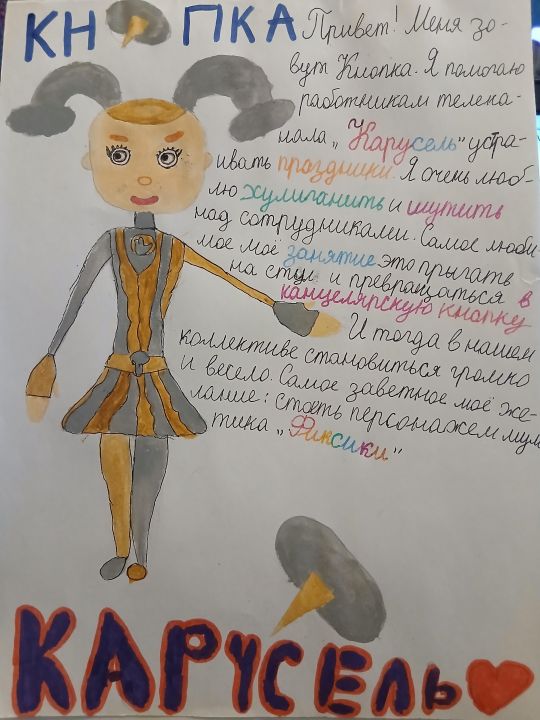 КНОПКА
Привет! Меня зо-
вут Кнопка. Я помогаю
работникам телека-
нала „Карусель" устра-
ивать праздники. Я очень люб-
лю хулиганить и шутить
над сотрудниками. Самое люби
мое моё занятие это прыгать
на стул и превращаться в
канцелярскую кнопку
И тогда в нашем
коллективе становиться громко
и весело. Самое заветное моё же-
лание: стоеть персонажем муль
тика „Фиксики"
КАРУСЕЛЬ